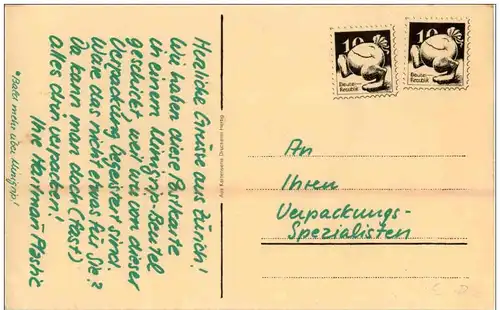 Herzliche Grüsse aus Zürich!
Wir haben diese Postkarte
in einem Minigrip-Beutel
geschickt weil wir von dieser
Verpackung begeistert sind.
Wäre das nicht etwas für Sie?
Da kann man doch (fast)
alles drin verpacken!
Ihre Hartmann Plastic
Bald mehr über Minigrip!
10
Deutsche
Republik
10
Deutsche
Republik
An
Ihren
Verpackungs-
Spezialisten